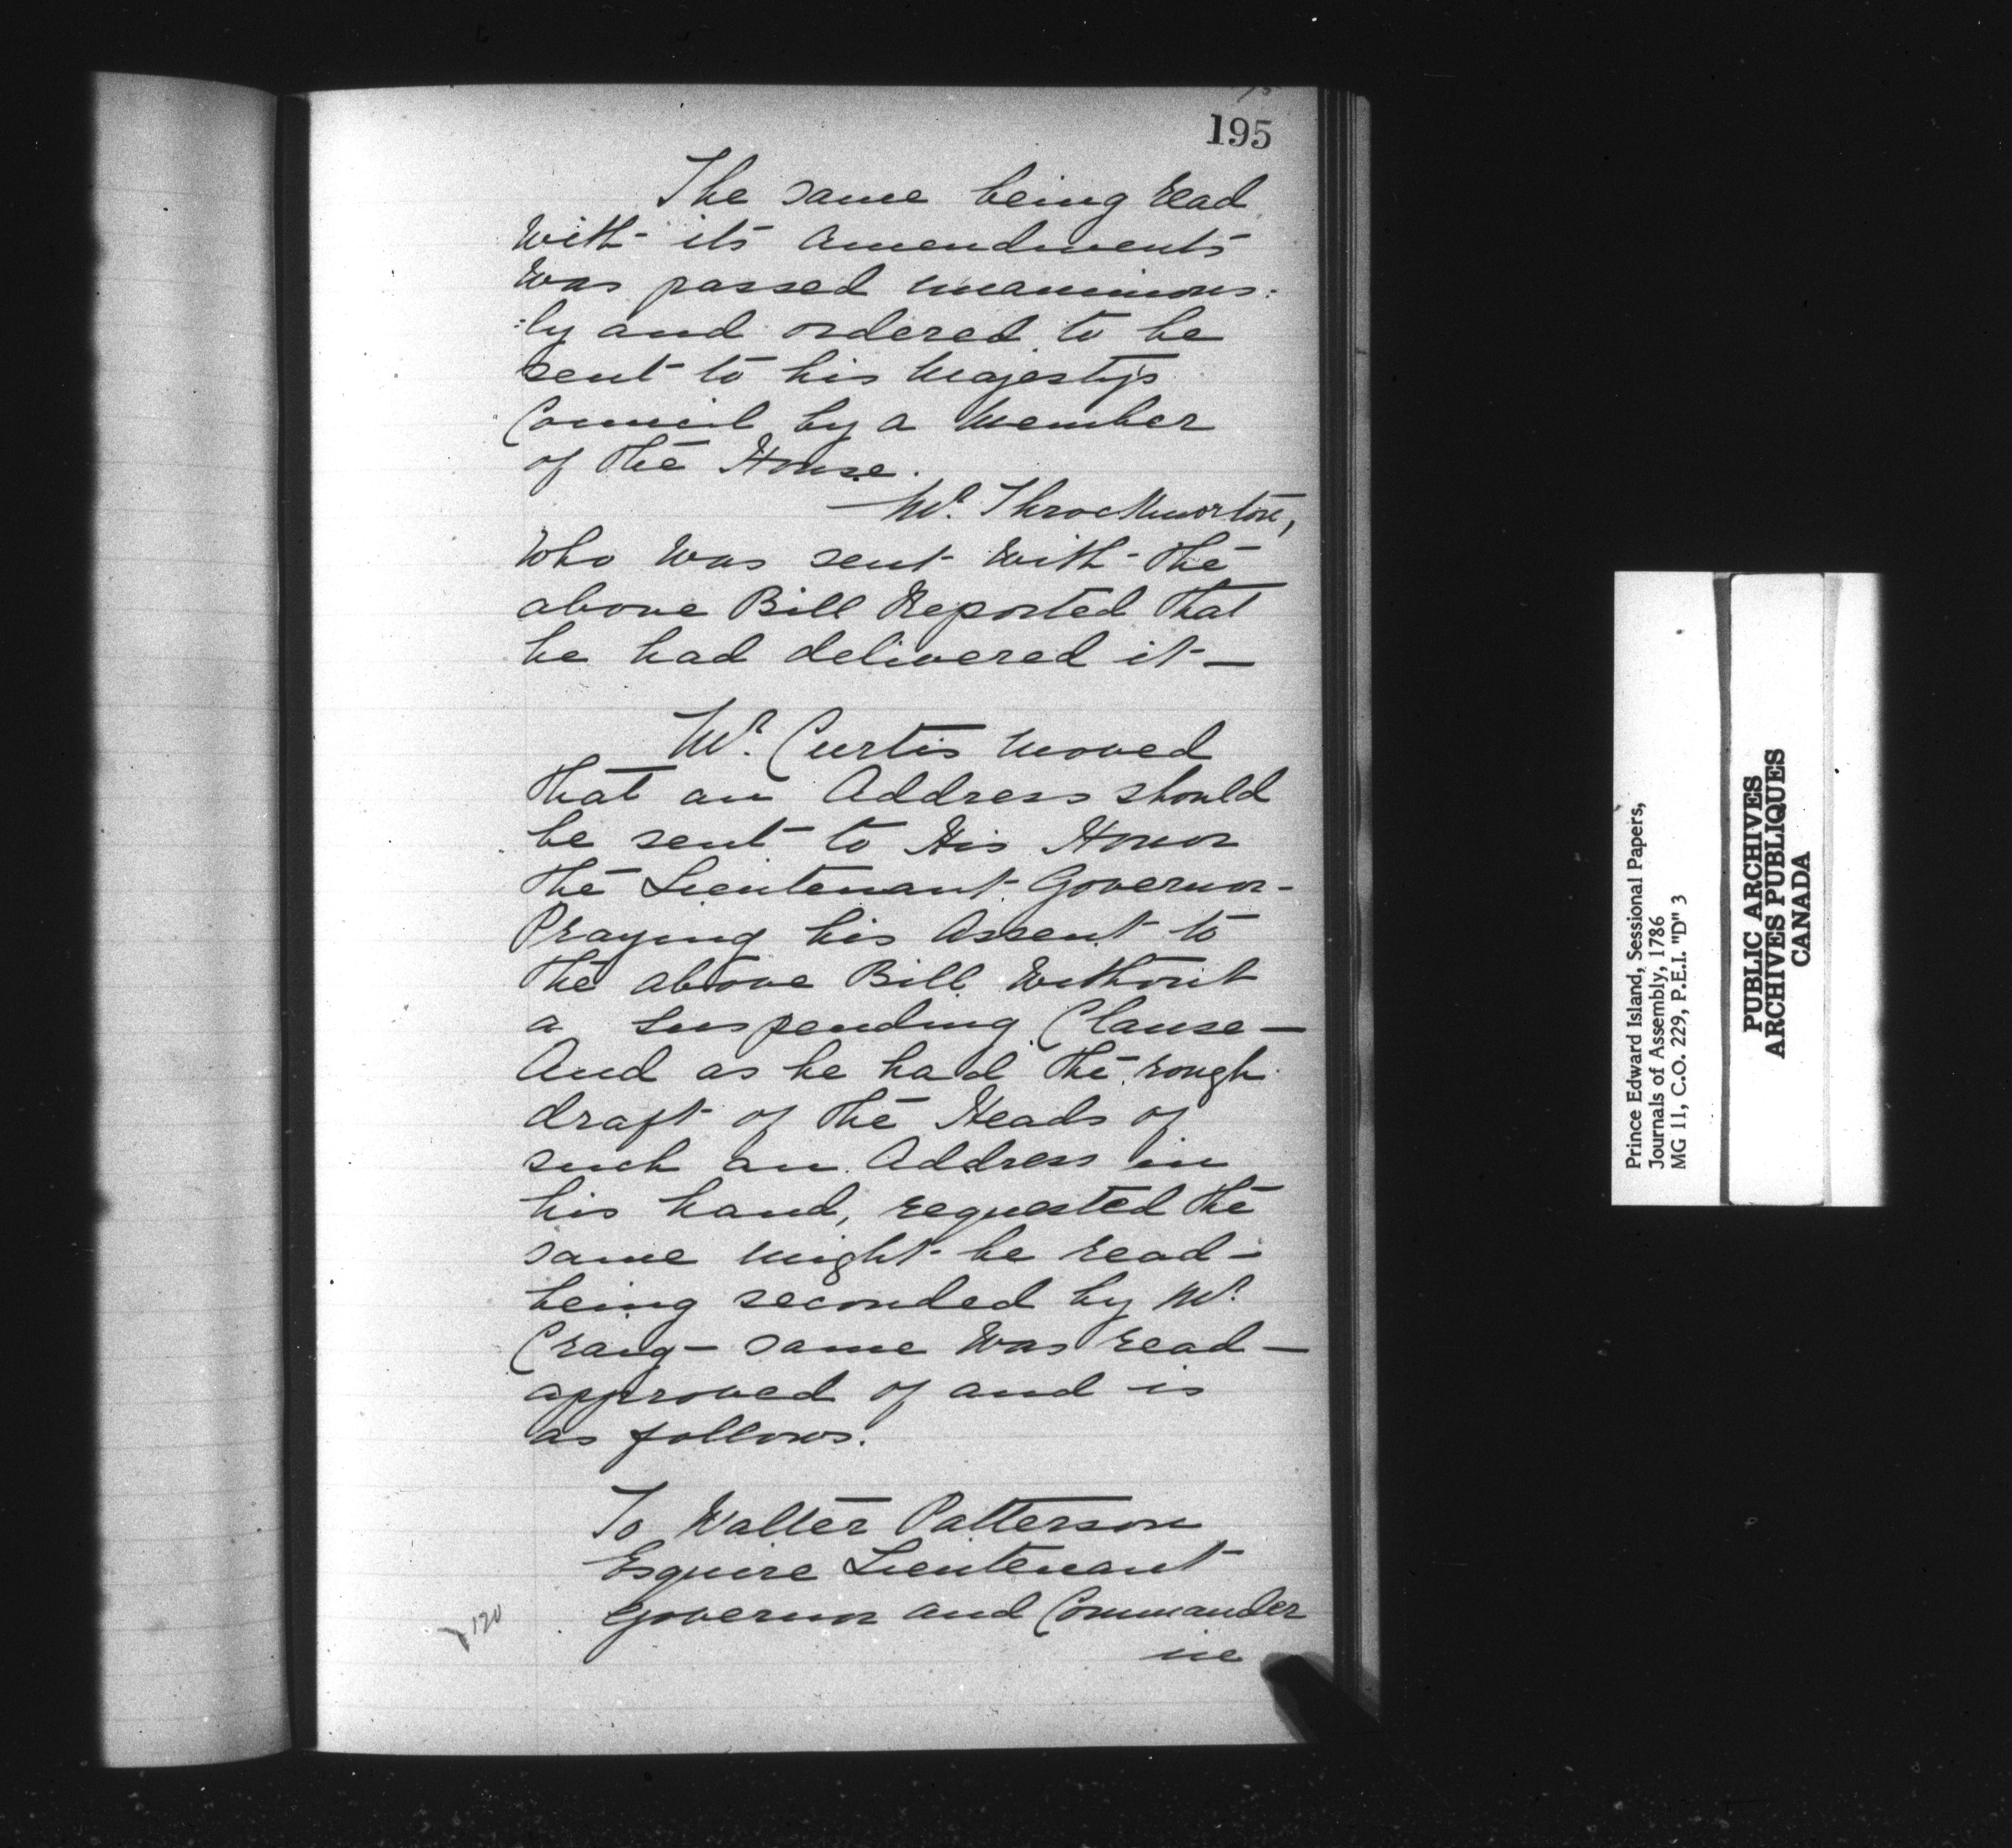 195
The same being read
with its Amendments
was passed unanimous:
:ly and ordered to be
sent to his Majesty's
Council by a Member
of the House.
Mr. Throckmorton,
who was sent with the
above Bill Reported that
he had delivered it—
Mr. Curtis moved
that an Address should
be sent to His Honor
the Lieutenant Governor-
Praying his Assent to
the above Bill without
a Suspending Clause—
And as he had the rough
draft of the Heads of
such an Address in
his hand, requested the
same might be read—
being seconded by Mr.
Craig— same was read—
approved of and is
as follows.
To Walter Patterson
Esquire Lieutenant
Governor and Commander
in
120
Prince Edward Island, Sessional Papers,
Journals of Assembly, 1786
MG 11, C.O. 229, P.E.I. "D" 3
PUBLIC ARCHIVES
ARCHIVES PUBLIQUES
CANADA